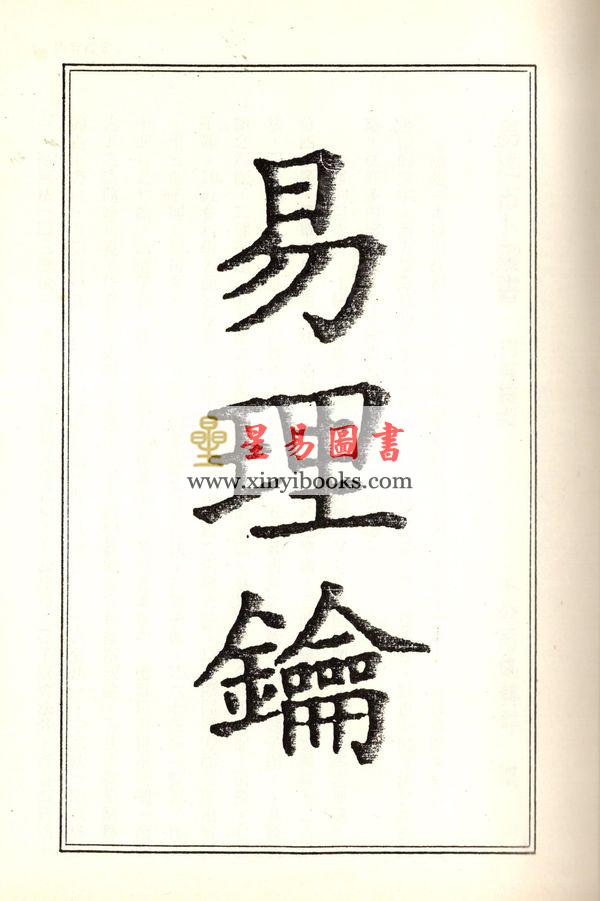 易理鑰
星易圖書
www.xinyibooks.com